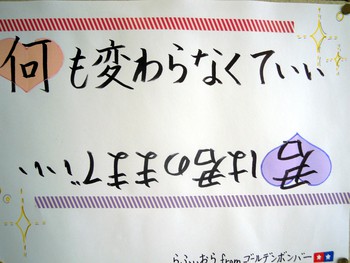 何も変わらなくていい
君は君のままでいい
らふぃおら fromゴールデンボンバー